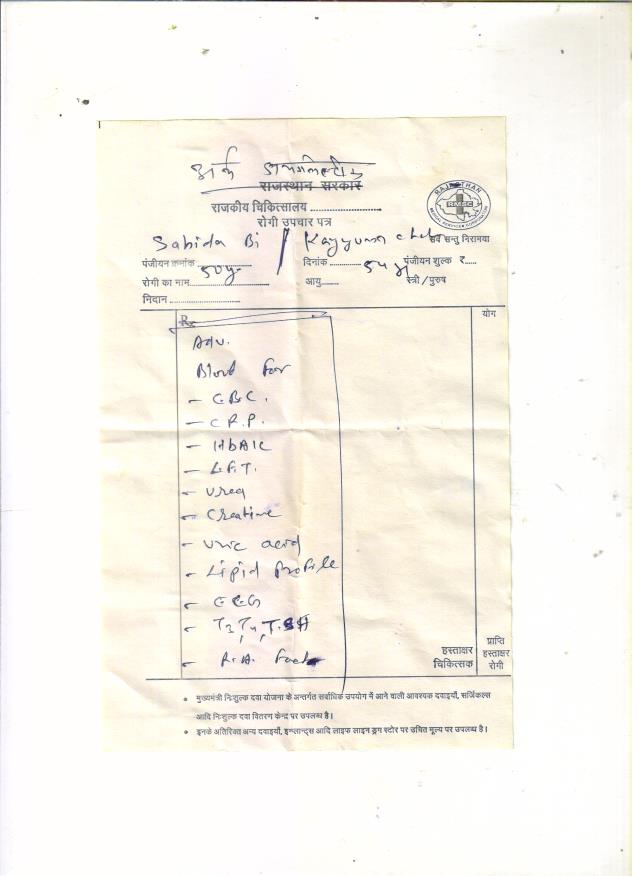 राजस्थान सरकार
राजकीय चिकित्सालय ....................
रोगी उपचार पत्र
RAJASTHAN MEDICAL SERVICES CORPORATION
RMSC
सर्वे सन्तु निरामया
Sabida Bi / Kayyum
पंजीयन क्रमांक .................... दिनांक ........... पंजीयन शुल्क र .....
50y 54y
रोगी का नाम .................... आयु ...... स्त्री / पुरुष
निदान ....................
Rx योग
Adv.
Blood for
- C.B.C.
- C.R.P.
- HbA1C
- L.F.T.
- Urea
- Creatine
- Uric acid
- Lipid Profile
- ECG
- T3, T4, TSH
- R.A. Fact
हस्ताक्षर चिकित्सक
प्राप्ति हस्ताक्षर रोगी
• मुख्यमंत्री निःशुल्क दवा योजना के अन्तर्गत सर्वाधिक उपयोग में आने वाली आवश्यक दवाइयाँ, सर्जिकल्स
आदि निःशुल्क दवा वितरण केन्द्र पर उपलब्ध है।
• इनके अतिरिक्त अन्य दवाइयाँ, इम्प्लान्ट्स आदि लाइफ लाइन ड्रग स्टोर पर उचित मूल्य पर उपलब्ध है।